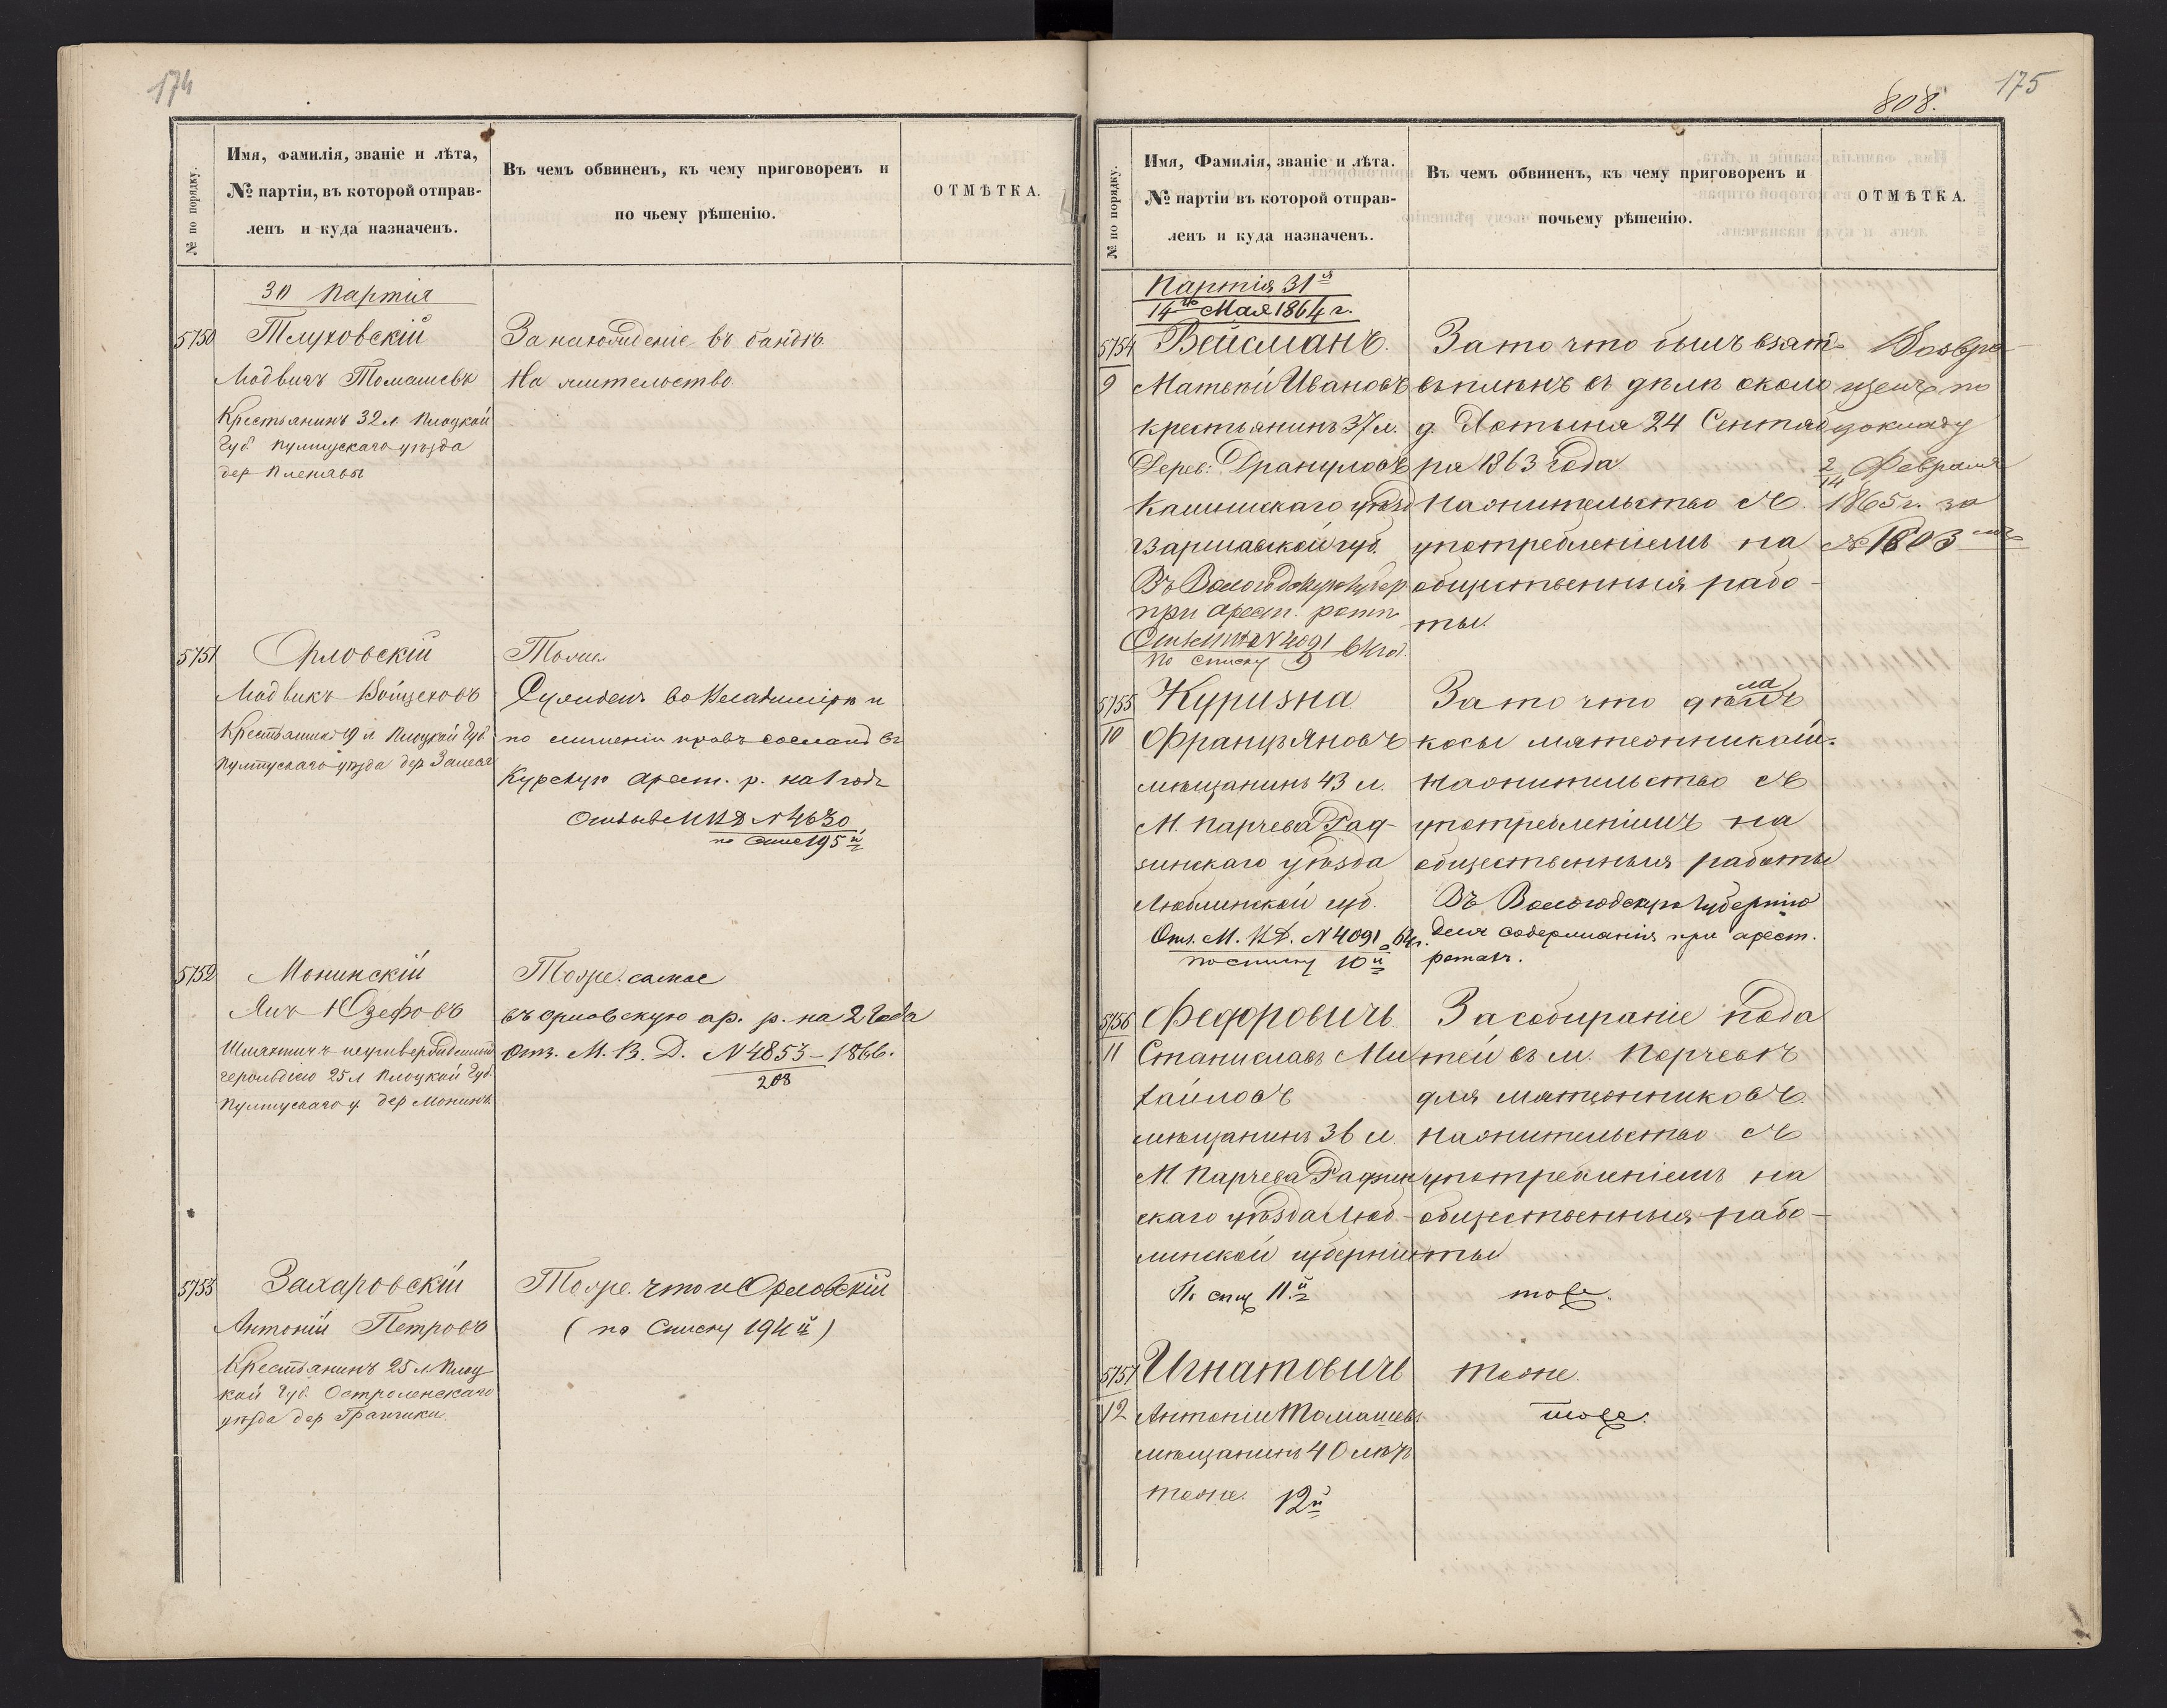 174
№ по порядку.
Имя, фамилія, званіе и лѣта,
№ партіи, въ которой отправ-
ленъ и куда назначенъ.
Въ чемъ обвиненъ, къ чему приговоренъ и
по чьему рѣшенію.
ОТМѢТКА.
30 Партія
5750
Тлуховскій
Людвигъ Томашевъ
Крестьянинъ 32 л Плоцкой
Губ Пултускаго уѣзда
дер
За нахожденіе въ бандѣ
На жительство
5751
Орловскій
Людвикъ Войцеховъ
Крестьянинъ 19 л Плоцкой Губ
Пултускаго уѣзда дер Залесье
Тоже
Сужденъ во Владимірѣ и
по лишеніи правъ сосланъ въ
Курскую арест. р. на 1 годъ
Отзывъ МВД № 4630
по спис 195й
5752
Монинскій
Янъ Юзефовъ
Шляхтичъ неутвержденный
герольдіею 25 л Плоцкой Губ.
Пултускаго у. дер
Тоже самое
въ Орловскую ар. р. на 2 года
Отз. М. В. Д. № 4853 - 1866.
208
5753
Захаровскій
Антоній Петровъ
Крестьянинъ 25 л. Плоц
кой Губ Остроленскаго
уѣзда дер
Тоже что и Орловскій
(по списку 194й)
175
808.
№ по порядку.
Имя, Фамилія, званіе и лѣта.
№ партіи въ которой отправ-
ленъ и куда назначенъ.
Въ чемъ обвиненъ, къ чему приговоренъ и
почьему рѣшенію.
ОТМѢТКА.
Партія 31я
14го Мая 1864 г.
5754
9
Вейсманъ.
Матвѣй Ивановъ
крестьянинъ 37 л.
Дерев:
Калишскаго уѣзд
Варшавской губ.
Въ Вологодскую губер
при арест. ротѣ
Отз. МВД № 4091 64 год.
По списку 9
За то что былъ взятъ
въ плѣнъ въ дѣлѣ около
д. 24 Сентяб
ря 1863 года
На жительство съ
употребленіемъ на
общественныя рабо-
ты.
Возвра-
щенъ по
докладу
2/14 Февраля
1865 г. за
№ 1803мъ
5755
10
Куризна
Францъ Яновъ
мѣщанинъ 43 л.
М. Парчева Рад-
зинскаго уѣзда
Люблинской губ.
Отз. М. В. Д. № 4091 64 г.
по списку 10й
За то что дѣлалъ
косы мятежникамъ.
На жительство съ
употребленіемъ на
общественныя работы
Въ Вологодскую губернію
для содержанія при арест.
ротахъ.
5756
11
Федоровичъ
Станиславъ Ми
хайловъ
мѣщанинъ 36 л.
М Парчева Радзин
скаго уѣзда Люб-
линской губерніи
По спис 11й
За собираніе пода
тей въ м. Парчевѣ
для мятежниковъ.
На жительство съ
употребленіемъ на
общественныя рабо-
ты
тоже.
5757
12
Игнатовичъ
Антоній Томашевъ
мѣщанинъ 40 лѣтъ
тоже. 12й
тоже.
тоже.